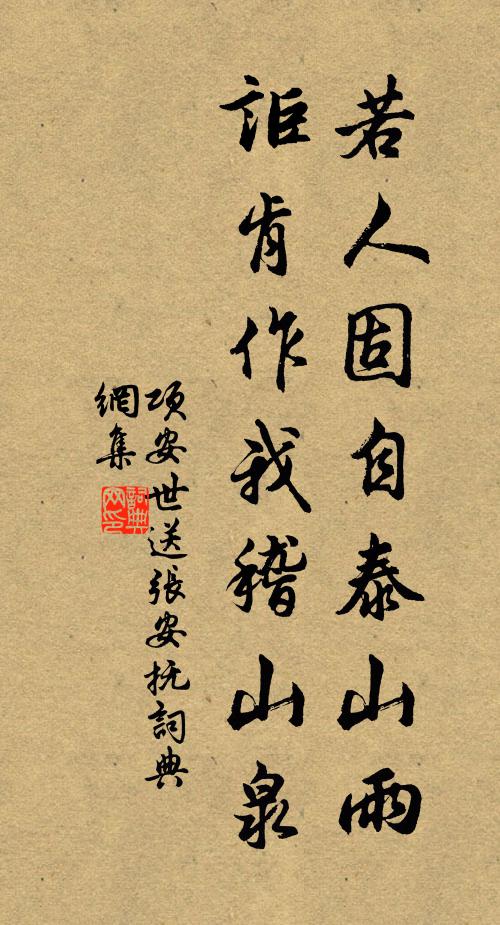 若人固自泰山雨
詎肯作我稽山泉
项安世送張安抚詞典
網集
詞典网印